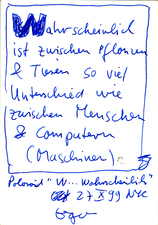 Wahrscheinlich
ist zwischen Pflanzen
& Tieren so viel
Unterschied wie
zwischen Menschen
& Computern
(Maschinen)
Poloroid "W... Wahrscheinlich"
27 X 99 NYC